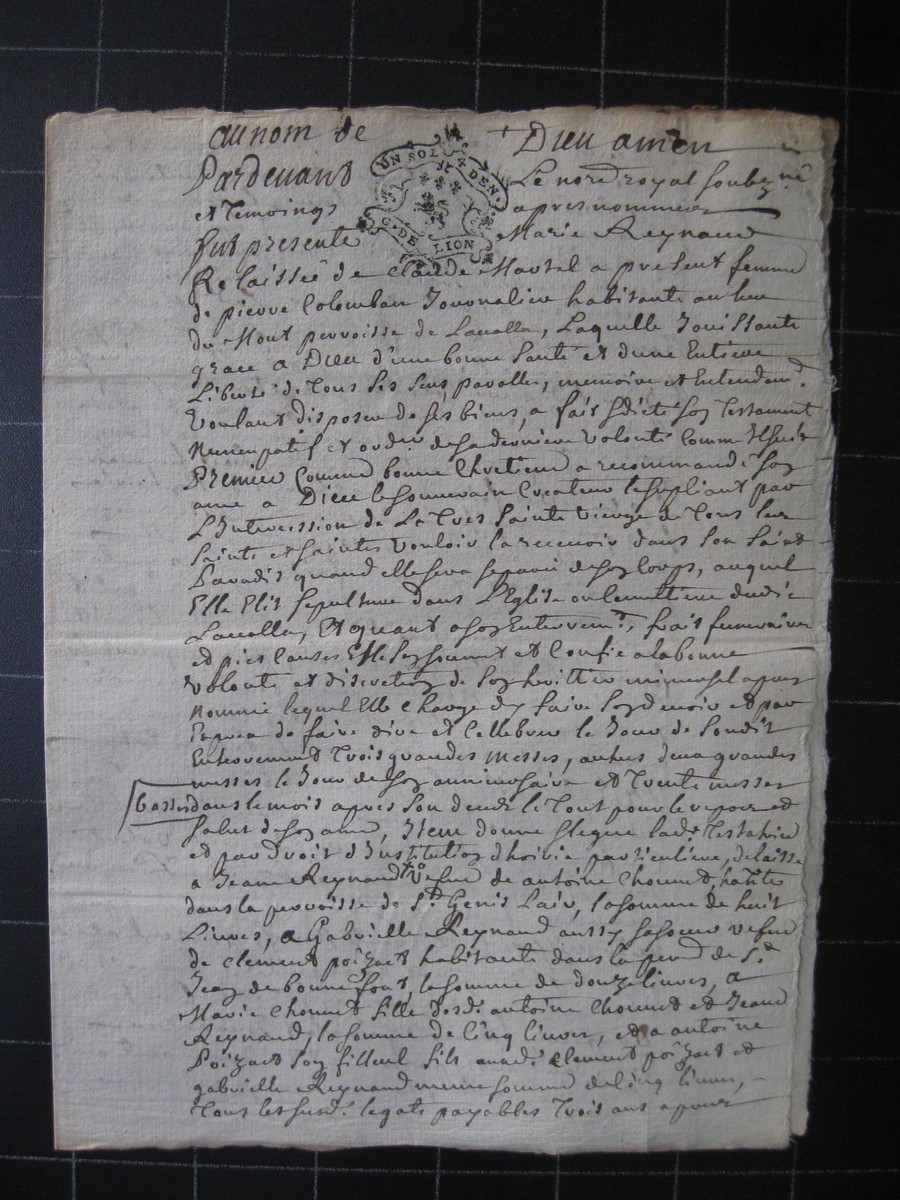 au nom de Dieu amen
UN SOL 4 DEN.
G. DE LION
Pardevant Le no.re royal soubz.né
et Temoings apres nommeez
fut presente Marie Reynaud
Relaissée de Claude Martel a present femme
de pierre Colomban Journalier habitante au lieu
du Mont perroisse de Lavalla, Laquelle Jouissante
grace a Dieu d'une bonne santé et dune Entiere
Liberté de Tous ses sens, parolles, memoire et Entendem.t
Voulant disposer de ses biens, a fait & dicté soy Testament
Nuncupatif et ord.re de sa derniere volonté Comm Il suit
Premier Comme bonne Chretiene a recommandé soy
ame a Dieu le souverain Createur le supliant par
L'Intercession de La Tres Sainte Vierge de Tous les
Saints et saintes vouloir la recevoir dans son Saint
Paradis quand elle sera separée de soy Corps, auquel
Elle Elit sepulture dans L'Eglise ou Cimettiere dudit
Lavalla, Et quant a soy Enterrem.t, frais funeraires
et pies Causes Elle sey soumet et Confie a la bonne
volonté et discretioy de soy heritier universel apres
nommé lequel Elle Charge dy faire soy devoir et par
Exprea de faire dire et Cellebrer le Jour de soudit
Enterrement Trois grandes messes, autres deux grandes
messes le Jour de soy anniversaire et Trente messes
basses dans le mois apres son decedz le Tout pour le repos et
salut de soy ame, Item donne & legue lad.e Testatrice
et par droit d'Institutioy dhoirie particuliere, delaisse
a Jeane Reynaud vefve de antoine Chomet, habit.te
dans la perroisse de S.t Genis Lair, la somme de huit
Livres, a Gabrielle Reynaud aussy sa soeur vefve
de Clement poizat habitante dans la perr.e de S.t
Jeay de bonne font, la somme de douze livres, a
Marie Chomet fille desd.s antoine Chomet et Jeane
Reynaud, la somme de Cinq livres, et a antoine
Poizat soy filleul fils aud.t Clement poizat et
gabrielle Reynaud meme somme de Cinq livres,
Tous les susd.s legats payables Trois ans apres